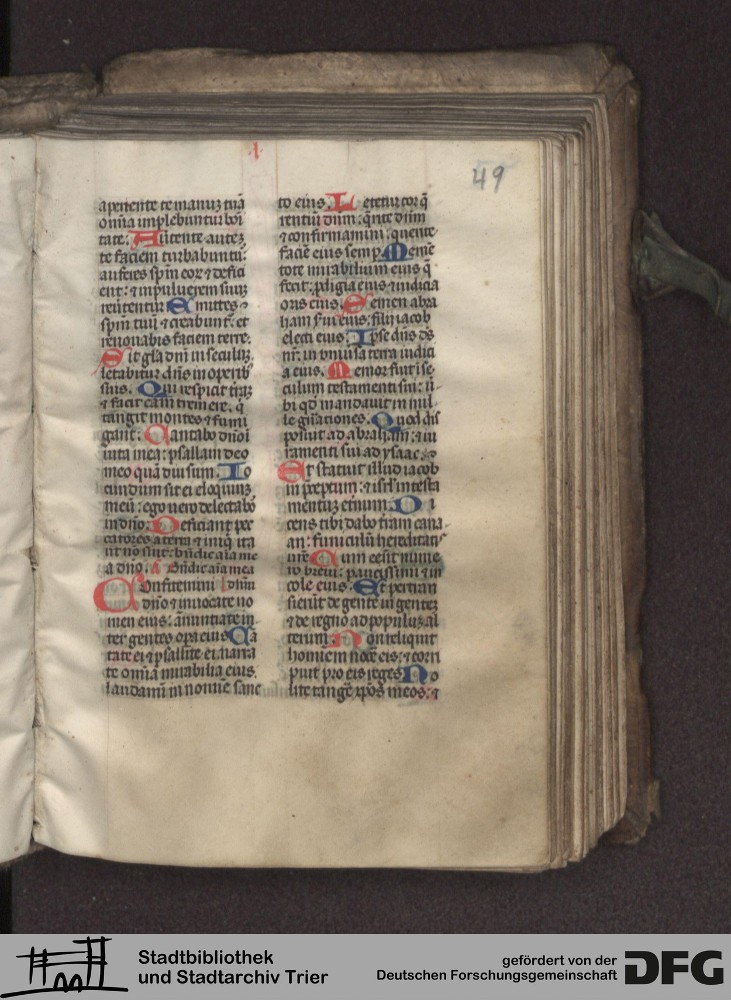 49
aperiente te manuz tuā
omīa implebuntur boi
tate. Auertente autez
te faciem turbabuntur
auferes spm̄ eor & defici
ent: & in puluerem suuz
reūtentur Emittes
spm̄ tuū & creabunt: et
renouabis faciem terre.
Sit gl̄a dnī in seculuz
letabitur dn̄s in operib
suis. Qui respicit t̄raz
& facit eam tremere. q̄
tangit montes & fumi
gant. Cantabo dnō ī
uita mea: psallam deo
meo quādiu sum. Io
cundum sit ei eloquiuz
meū: ego uero delectabō
in dnō. Deficiant pec
catores a terra & iniq̄ ita
ut nō sint: bn̄dic aīa me
a dnō. Bn̄dic aīa mea
Confitemini dnm̄
dnō & inuocate no
men eius: ānuntiate in
ter gentes opa eius Cā
tate ei & psallite ei narra
te omīa mirabilia eius.
laudamī in nomīe sanc
to eius. Letetur cor q̄
rentiū dnm̄: q̄rite dnm̄
& confirmamini: querite
faciē eius semp. Meme
tote mirabilium eius q̄
fecit: p̄digia eius & iudicia
oris eius. Semen abra
ham s̄ui eius: filii iacob
electi eius. Ipse dn̄s ds̄
nr̄: in uniūsa terra iudici
a eius. Memor fuit ī se
culum testamenti sui: ū
bi qd̄ mandauit in mil
le gn̄ationes. Quod dis
posuit ad abraham: & iu
ramenti sui ad ysaac.
Et statuit illud iacob
in p̄ceptum: & isrl̄ in testa
mentuz et̄num. Di
cens tibi dabo t̄ram cana
an: funiculū hereditatis
ur̄e Cum eēnt nume
ro breui: paucissimi & in
cole eius. Et pertran
sierūt de gente in gentez
& de regno ad populuz al
terum Non reliquit
homiem nocē eis: & corri
puit pro eis reges. No
lite tangē xpōs meos: &
Stadtbibliothek
und Stadtarchiv Trier
gefördert von der
Deutschen Forschungsgemeinschaft
DFG